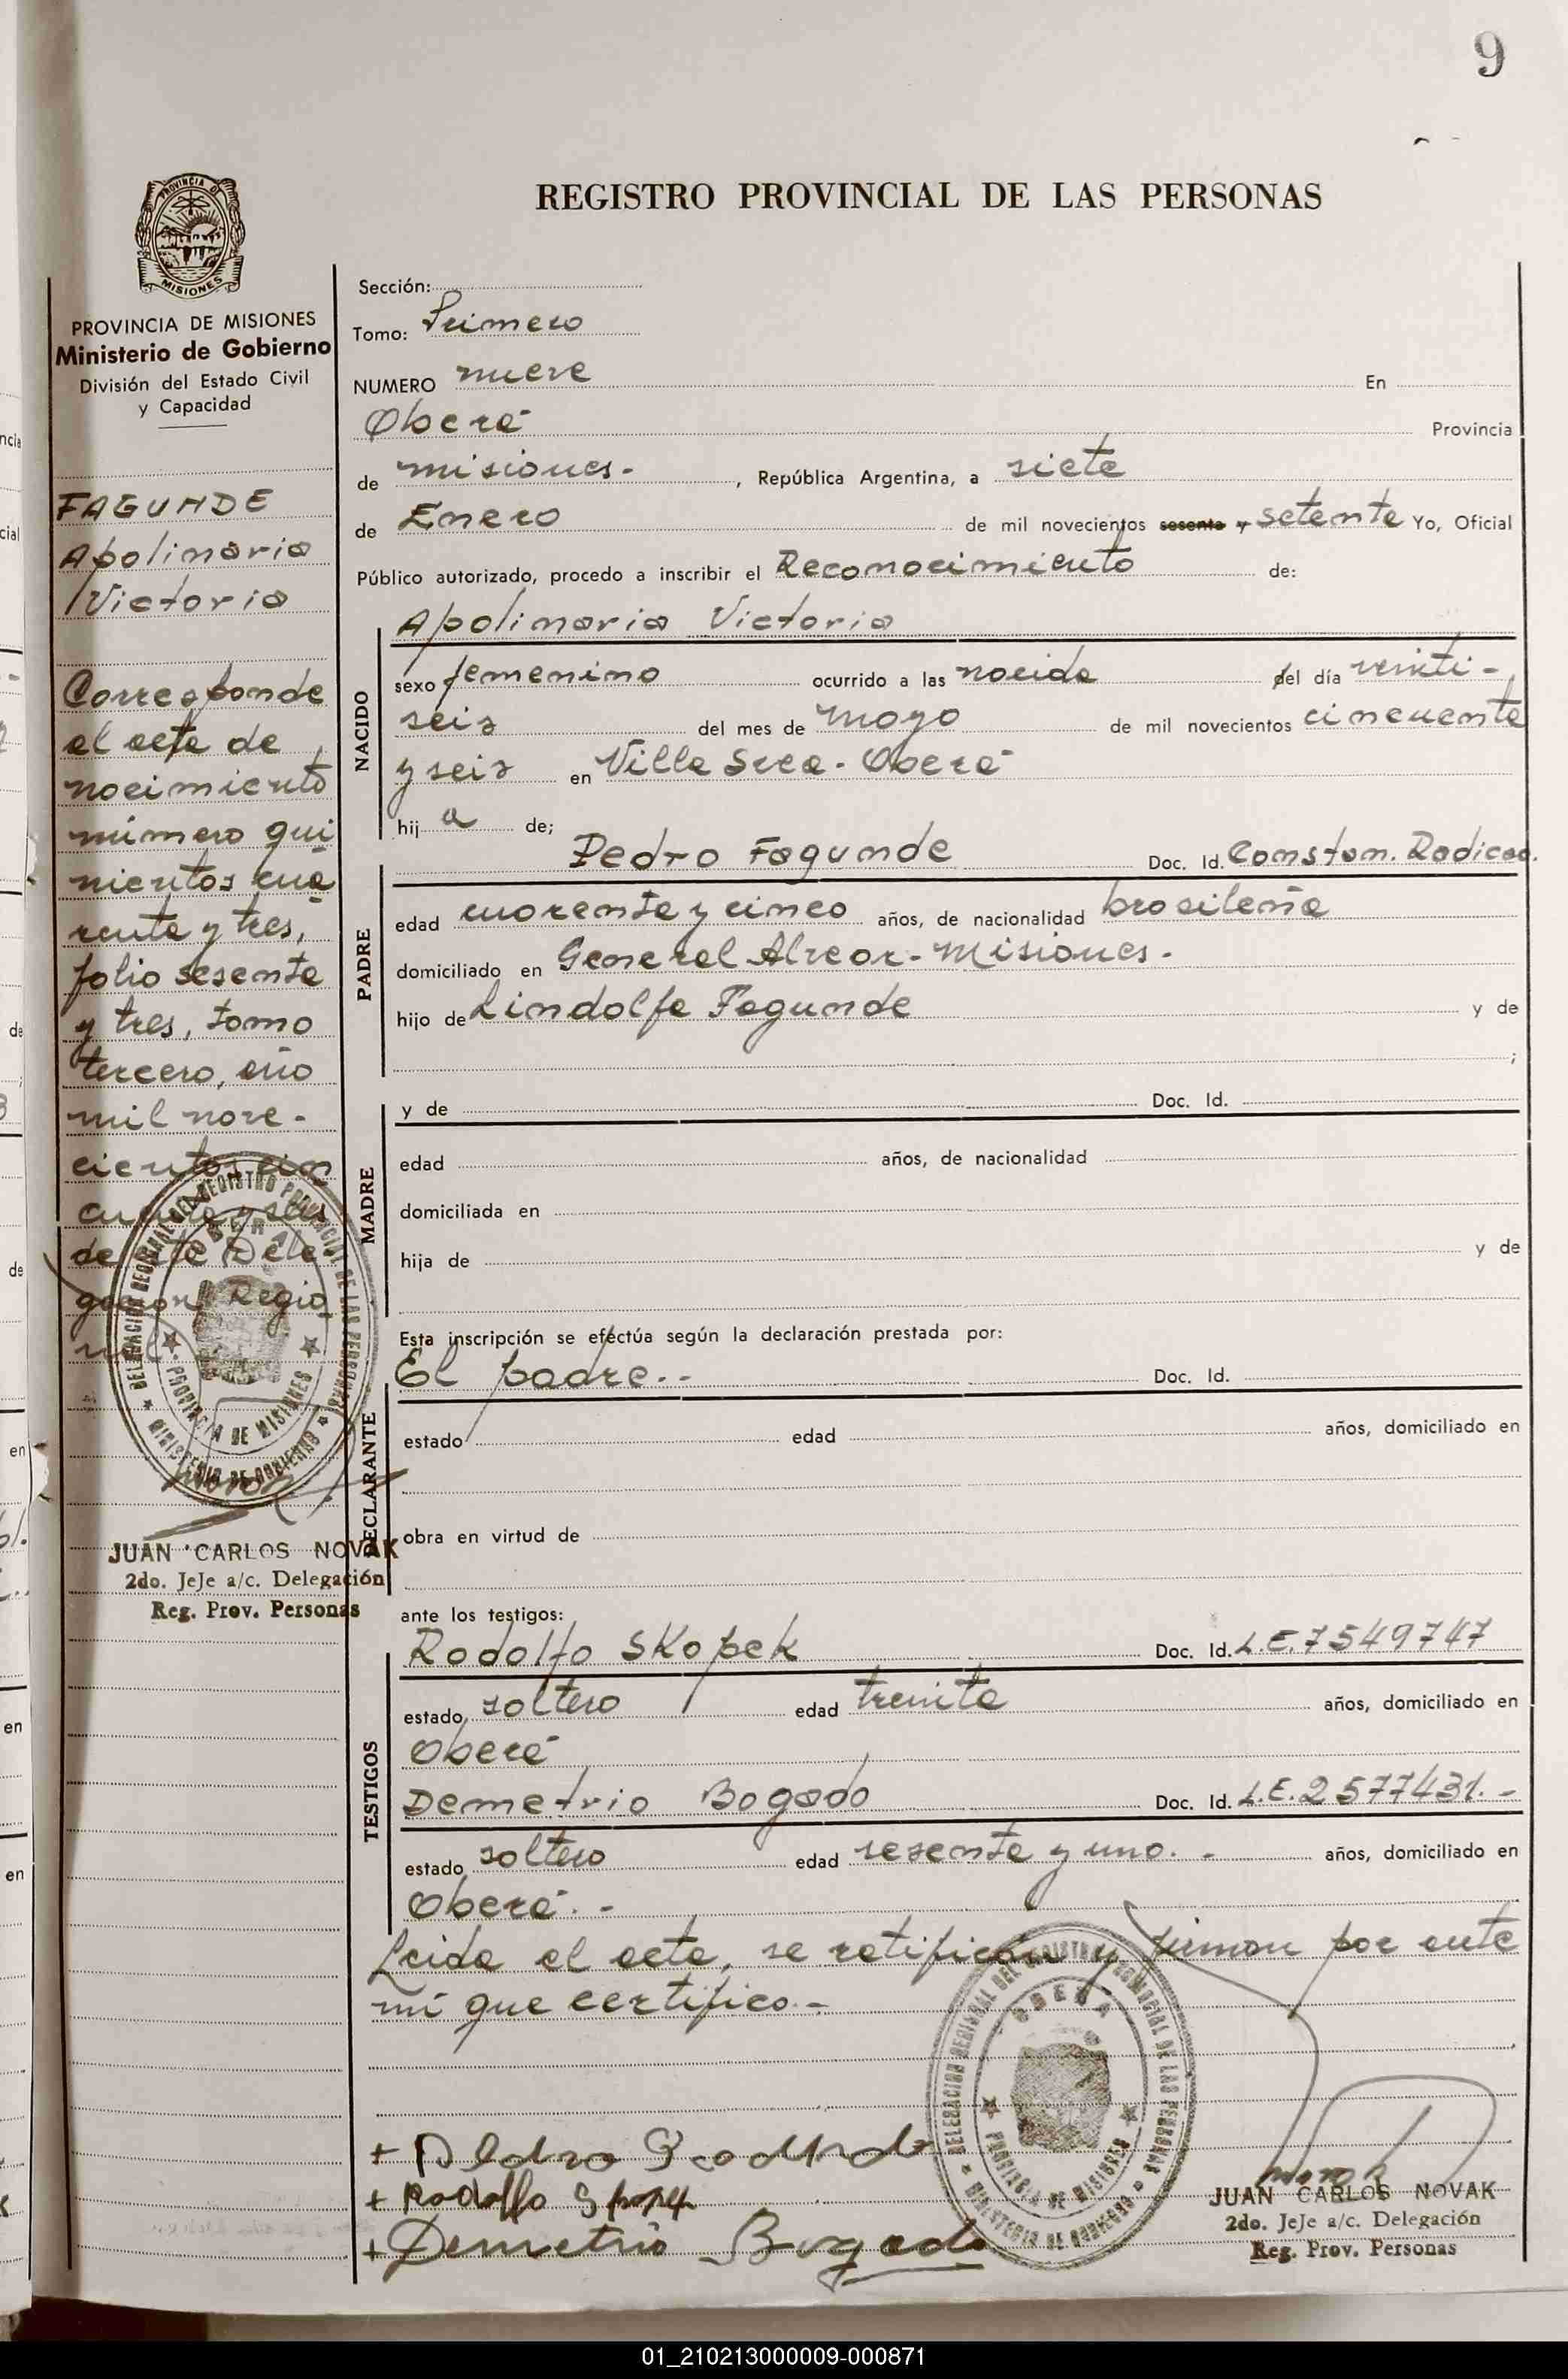 9
REGISTRO PROVINCIAL DE LAS PERSONAS
PROVINCIA DE MISIONES
Ministerio de Gobierno
División del Estado Civil
y Capacidad
FAGUNDE
Apolinaria
Victoria
Corresponde
al acta de
nacimiento
número qui
nientos cua
renta y tres,
folio sesenta
y tres, tomo
tercero, año
mil nove-
cientos cin
cuenta y seis
de esta Dele
gación Regio
nal
JUAN CARLOS NOVAK
2do. JeJe a/c. Delegación
Reg. Prov. Personas
Sección:
Tomo: Primero
NUMERO nueve En
Oberá Provincia
de misiones.- , República Argentina, a siete
de Enero de mil novecientos sesenta y setenta Yo, Oficial
Público autorizado, procedo a inscribir el Reconocimiento de:
Apolinaria Victoria
NACIDO
sexo femenino ocurrido a las nacida del día veinti-
seis del mes de mayo de mil novecientos cincuenta
y seis en Villa Svea - Oberá
hij a de;
PADRE
Pedro Fagunde Doc. Id. Constan. Radicac.
edad cuarenta y cinco años, de nacionalidad brasileña
domiciliado en General Alvear - Misiones.
hijo de Lindolfa Fagunde y de
;
MADRE
y de Doc. Id.
edad años, de nacionalidad
domiciliada en
hija de y de
DECLARANTE
Esta inscripción se efectúa según la declaración prestada por:
El padre.-- Doc. Id.
estado edad años, domiciliado en
obra en virtud de
TESTIGOS
ante los testigos:
Rodolfo Skopek Doc. Id. L.E. 7549747
estado soltero edad treinta años, domiciliado en
Oberá
Demetrio Bogado Doc. Id. L.E. 2577431.-
estado soltero edad sesenta y uno.- años, domiciliado en
Oberá.-
Leida el acta, se ratifican y firman por ante
mi que certifico.-
+ Pedro
+ Rodolfo
+ Demetrio Bogado
DELEGACION REGIONAL DEL REGISTRO PROVINCIAL DE LAS PERSONAS
OBERA
PROVINCIA DE MISIONES
MINISTERIO DE GOBIERNO
JUAN CARLOS NOVAK
2do. JeJe a/c. Delegación
Reg. Prov. Personas
01_210213000009-000871